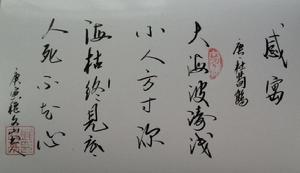 感寓
唐杜荀鶴
大海波濤浅
小人方寸深
海枯終見底
人死不知心
庚寅